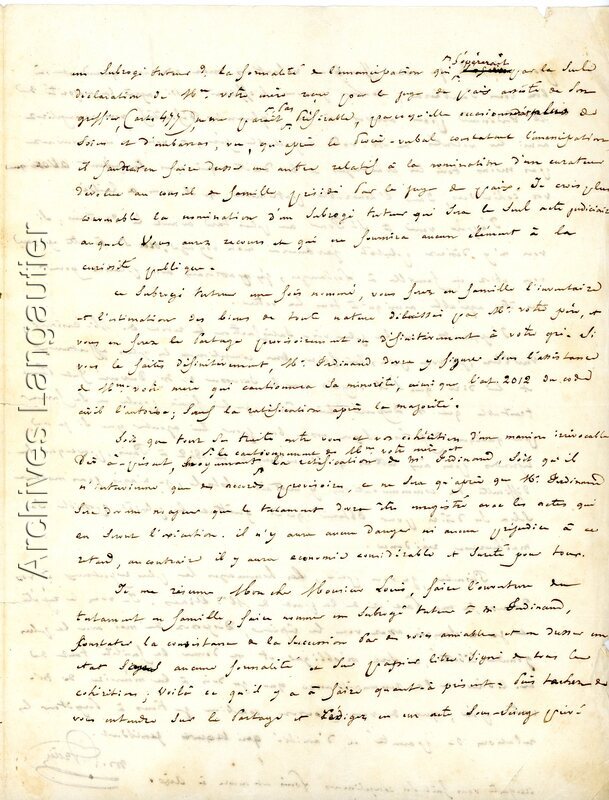 s'opérerait
un Subrogé tuteur à la formalité de l'émancipation qui par la Seule
déclaration de Mme votre mère reçue par le juge de paix assisté de Son
greffier, (arte 477) ne me paraît pas préférable, parcequ'elle de
Soins et d'embarras, vu, qu'après le procès-verbal constatant l'émancipation
il faudrait en faire dresser un autre relatif à la nomination d'un curateur
dévolue au conseil de famille présidé par le juge de paix. Je crois plus
convenable la nomination d'un Subrogé tuteur qui Sera le Seul acte judiciaire
auquel Vous aurez recours et qui ne fournira aucun élément à la
curiosité publique.
ce Subrogé tuteur une fois nommé, vous ferez en famille l'inventaire
et l'estimation des biens de toute nature délaissés par Mr votre père, et
vous en ferez le Partage provisoirement ou définitivement à votre gré. Si
vous le faites définitivement, Mr Ferdinand devra y figurer Sous l'assistance
de Mme votre mère qui cautionnera Sa minorité, ainsi que l'at. 2012 du code
civil l'autorise; Sauf la ratification après la majorité.
Soit que tout Se traite entre vous et vos cohéritiers d'une manière irrévocable
Dès à-présent, Sous le cautionnement de Mme votre mère et
moyennant la ratification de Mr Ferdinand, Soit qu'il
n'intervienne que des accords provisoires, ce ne Sera qu'après que Mr Ferdinand
Sera devenu majeur que le testament devra être enregistré avec les actes qui
en Seront l'exécution. il n'y aura aucun danger ni aucun préjudice à ce
retard, au contraire il y aura économie considérable et Sureté pour tous.
Je me résume, Mon cher Monsieur Louis, faire l'ouverture du
testament en famille, faire nommer un Subrogé tuteur à Mr Ferdinand,
Constater la consistance de la Succession Par des voies amiables et en dresser un
état Sans aucune formalité et Sur papier libre Signé de tous les
cohéritiers; Voilà ce qu'il y a à faire quant à présent. Puis tacher de
vous entendre Sur le Partage et rédiger en un acte Sous-Seing privé
Archives Langautier